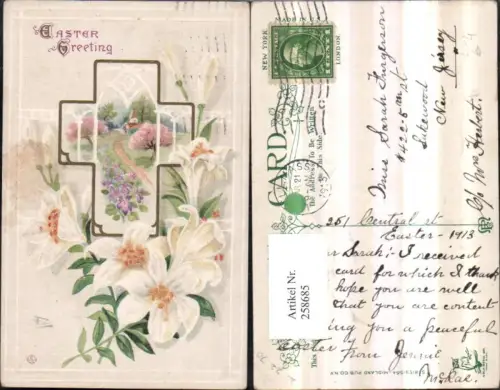 EASTER
Greeting
MADE IN U.S.A.
NEW YORK
LONDON
CARD
The Address To Be Written
on This Side
Miss Sarah Furgerson
#422 5th st
Lakewood
New Jersey
C/o Mrs. Herbert.
Artikel Nr.
258685
251 Central st
Easter - 1913
Sarah:- I received
card for which I thank
hope you are well
that you are content
ing you a peaceful
Easter from Jennie
McRae.